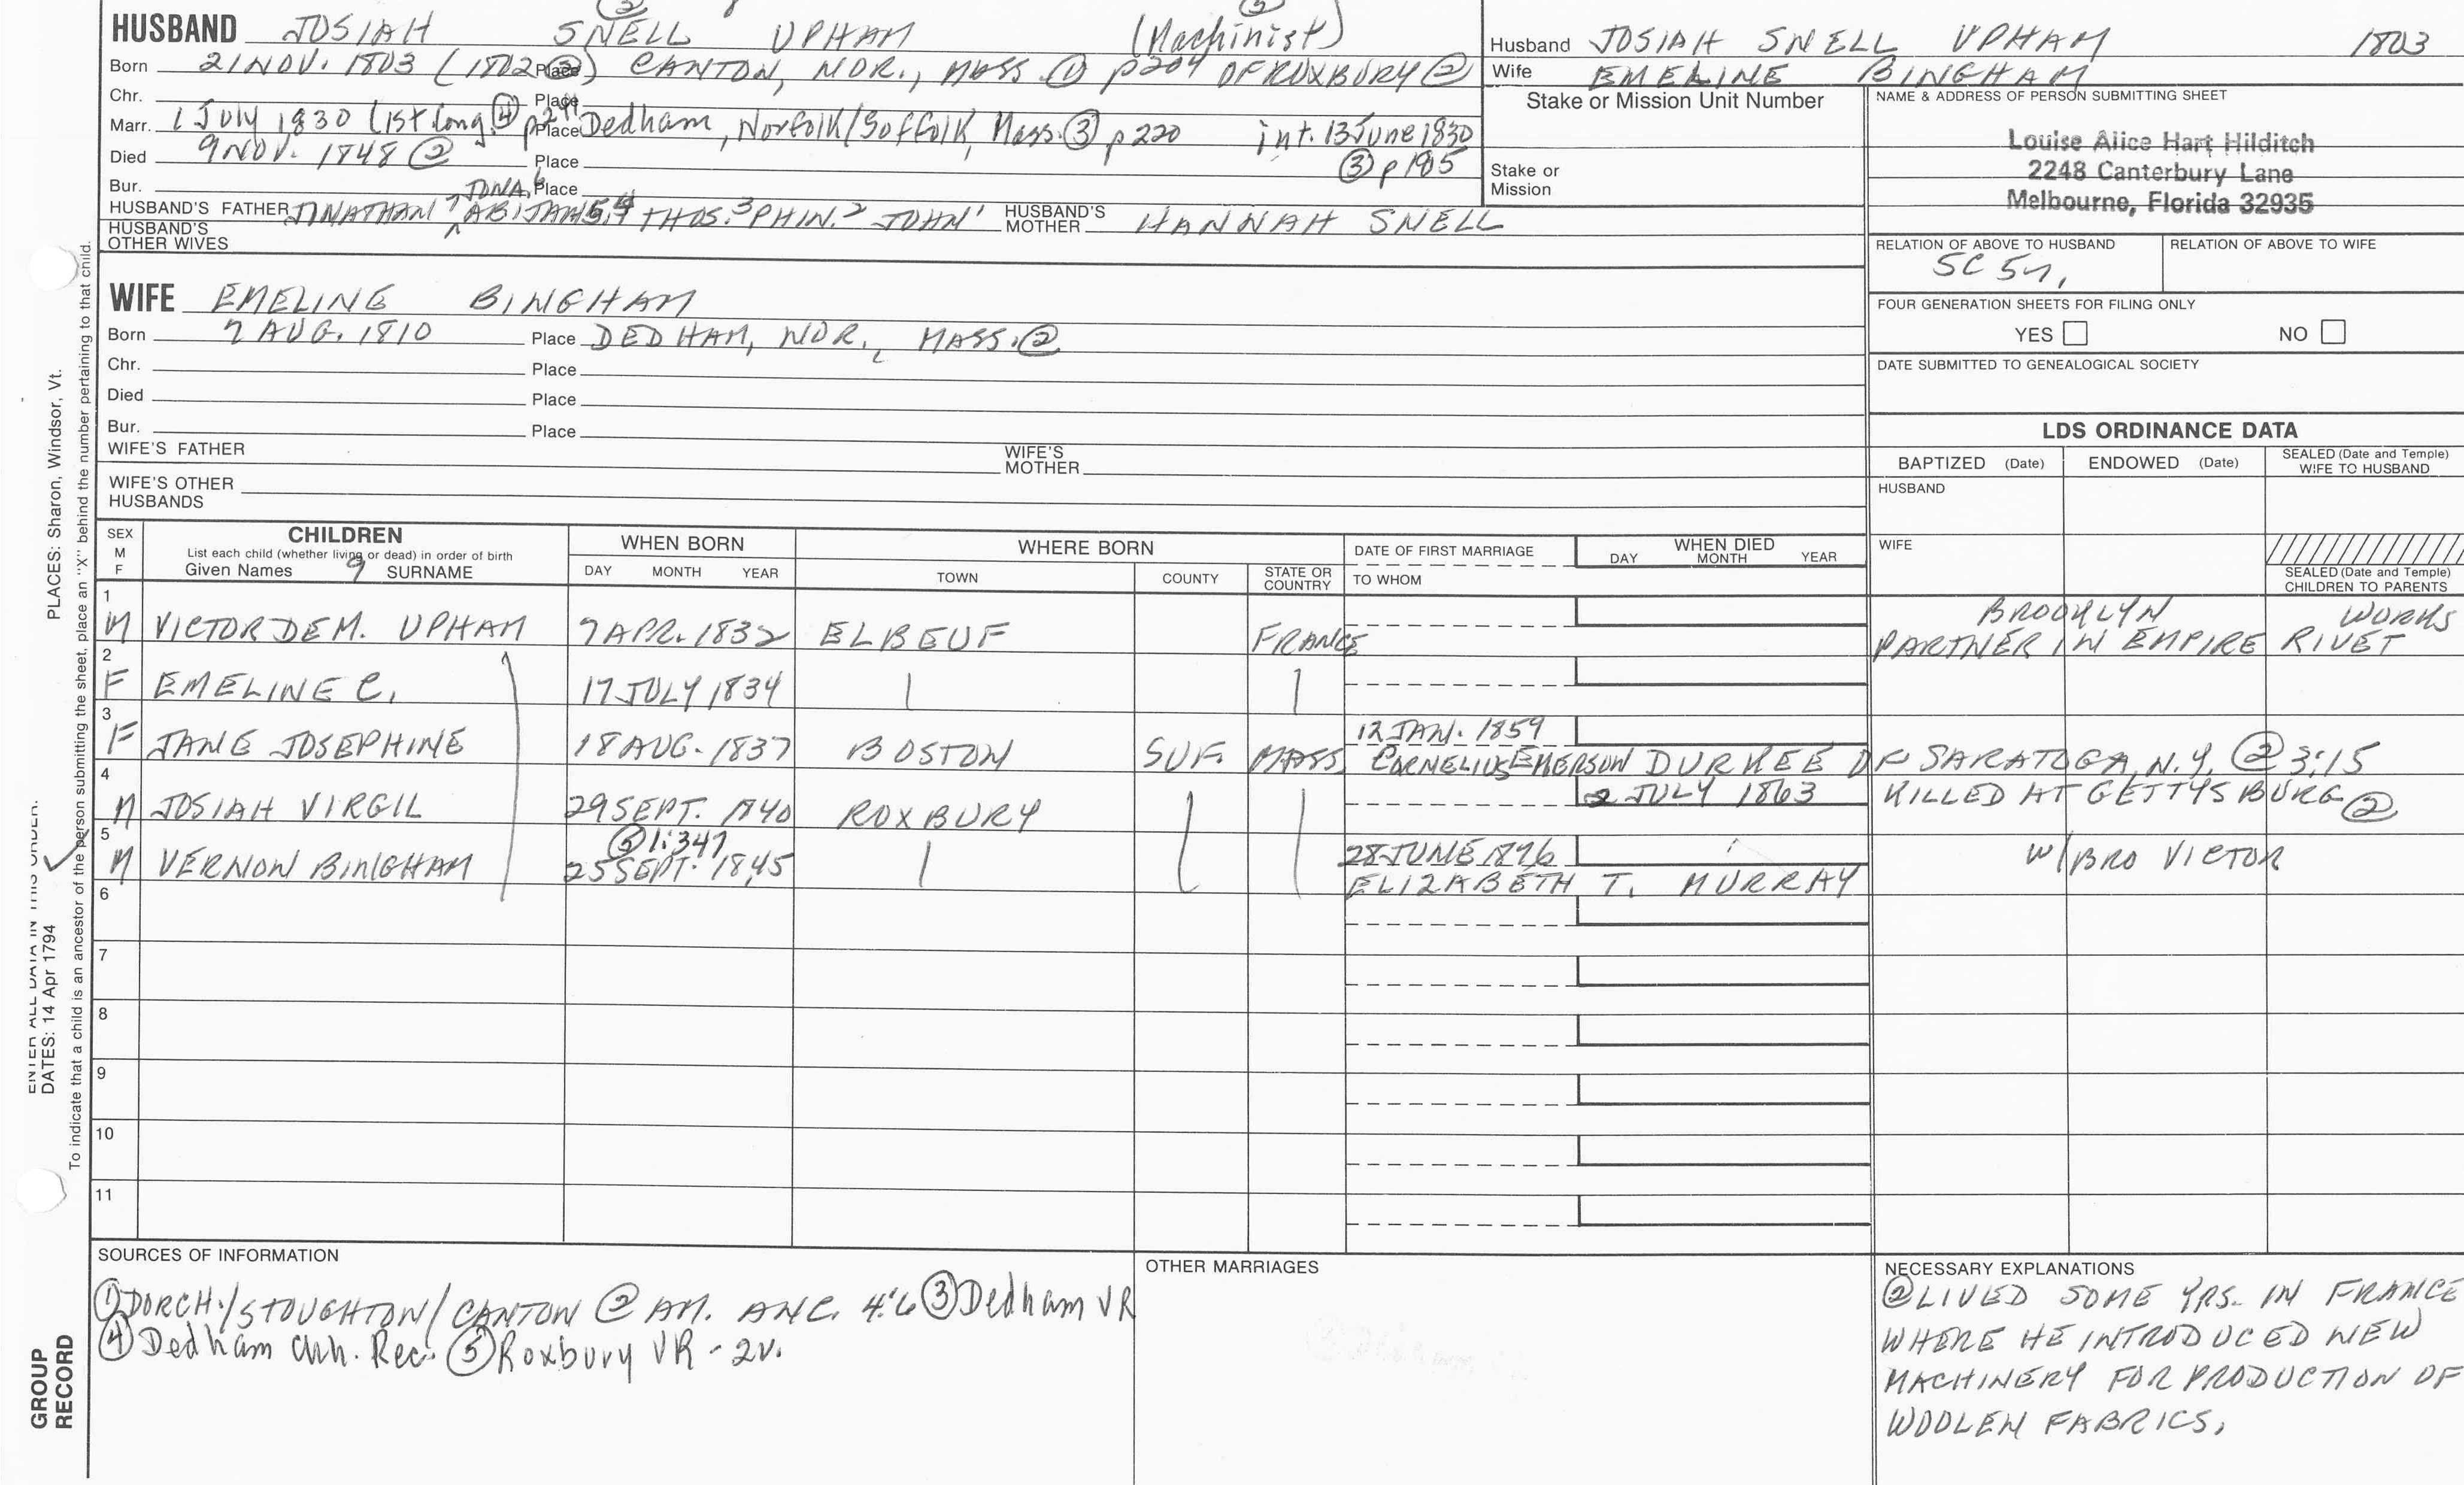 HUSBAND JOSIAH SNELL UPHAM (Machinist)
Born 21 NOV. 1803 (1802 ②) Place CANTON, NOR., MASS. ① p204 OF ROXBURY ②
Chr. Place
Marr. 1 July 1830 (1st Cong. ④ Place Dedham, Norfolk/Suffolk, Mass. ③ p220 int. 13 June 1830
③ p 195
Died 9 NOV. 1848 ② Place
Bur. Place
HUSBAND'S FATHER JONATHAN 7 JONA. 6 ABIJAH 5,4 THOS. 3 PHIN. 2 JOHN 1 HUSBAND'S MOTHER HANNAH SNELL
HUSBAND'S OTHER WIVES
Husband JOSIAH SNELL UPHAM 1803
Wife EMELINE BINGHAM
Stake or Mission Unit Number
Stake or Mission
NAME & ADDRESS OF PERSON SUBMITTING SHEET
Louise Alice Hart Hilditch
2248 Canterbury Lane
Melbourne, Florida 32935
RELATION OF ABOVE TO HUSBAND RELATION OF ABOVE TO WIFE
5C 5r,
FOUR GENERATION SHEETS FOR FILING ONLY
YES NO
DATE SUBMITTED TO GENEALOGICAL SOCIETY
WIFE EMELINE BINGHAM
Born 7 AUG. 1810 Place DEDHAM, NOR., MASS. ②
Chr. Place
Died Place
Bur. Place
WIFE'S FATHER WIFE'S MOTHER
WIFE'S OTHER HUSBANDS
LDS ORDINANCE DATA
BAPTIZED (Date) ENDOWED (Date) SEALED (Date and Temple) WIFE TO HUSBAND
HUSBAND
WIFE
SEALED (Date and Temple) CHILDREN TO PARENTS
SEX M F
CHILDREN
List each child (whether living or dead) in order of birth
Given Names 9 SURNAME
WHEN BORN
DAY MONTH YEAR
WHERE BORN
TOWN COUNTY STATE OR COUNTRY
DATE OF FIRST MARRIAGE
TO WHOM
WHEN DIED
DAY MONTH YEAR
1 M VICTOR DE M. UPHAM 7 APR. 1832 ELBEUF FRANCE BROOKLYN WORKS
PARTNER IN EMPIRE RIVET
2 F EMELINE C. 17 JULY 1834
3 F JANE JOSEPHINE 18 AUG. 1837 BOSTON SUF. MASS. 12 JAN. 1859
CORNELIUS EMERSON DURKEE OF SARATOGA, N.Y. ② 3:15
4 M JOSIAH VIRGIL 29 SEPT. 1840 ROXBURY 2 JULY 1863 KILLED AT GETTYSBURG ②
⑤ 1:347
5 M VERNON BINGHAM 25 SEPT. 1845 28 JUNE 1876 W/BRO VICTOR
ELIZABETH T. MURRAY
6
7
8
9
10
11
SOURCES OF INFORMATION
① DORCH./STOUGHTON/CANTON ② AM. ANC. 4:6 ③ Dedham VR
④ Dedham Chh. Rec. ⑤ Roxbury VR - 2v.
OTHER MARRIAGES
NECESSARY EXPLANATIONS
② LIVED SOME YRS. IN FRANCE
WHERE HE INTRODUCED NEW
MACHINERY FOR PRODUCTION OF
WOOLEN FABRICS.
ENTER ALL DATA IN THIS ORDER:
DATES: 14 Apr 1794
PLACES: Sharon, Windsor, Vt.
To indicate that a child is an ancestor of the person submitting the sheet, place an "X" behind the number pertaining to that child.
GROUP RECORD